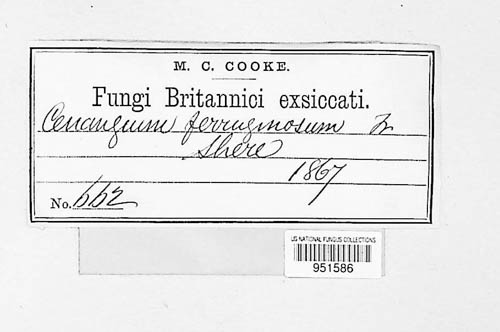 M. C. COOKE.
Fungi Britannici exsiccati.
Cenangium ferruginosum Fr
Shere
1867
No. 662
US NATIONAL FUNGUS COLLECTIONS
951586